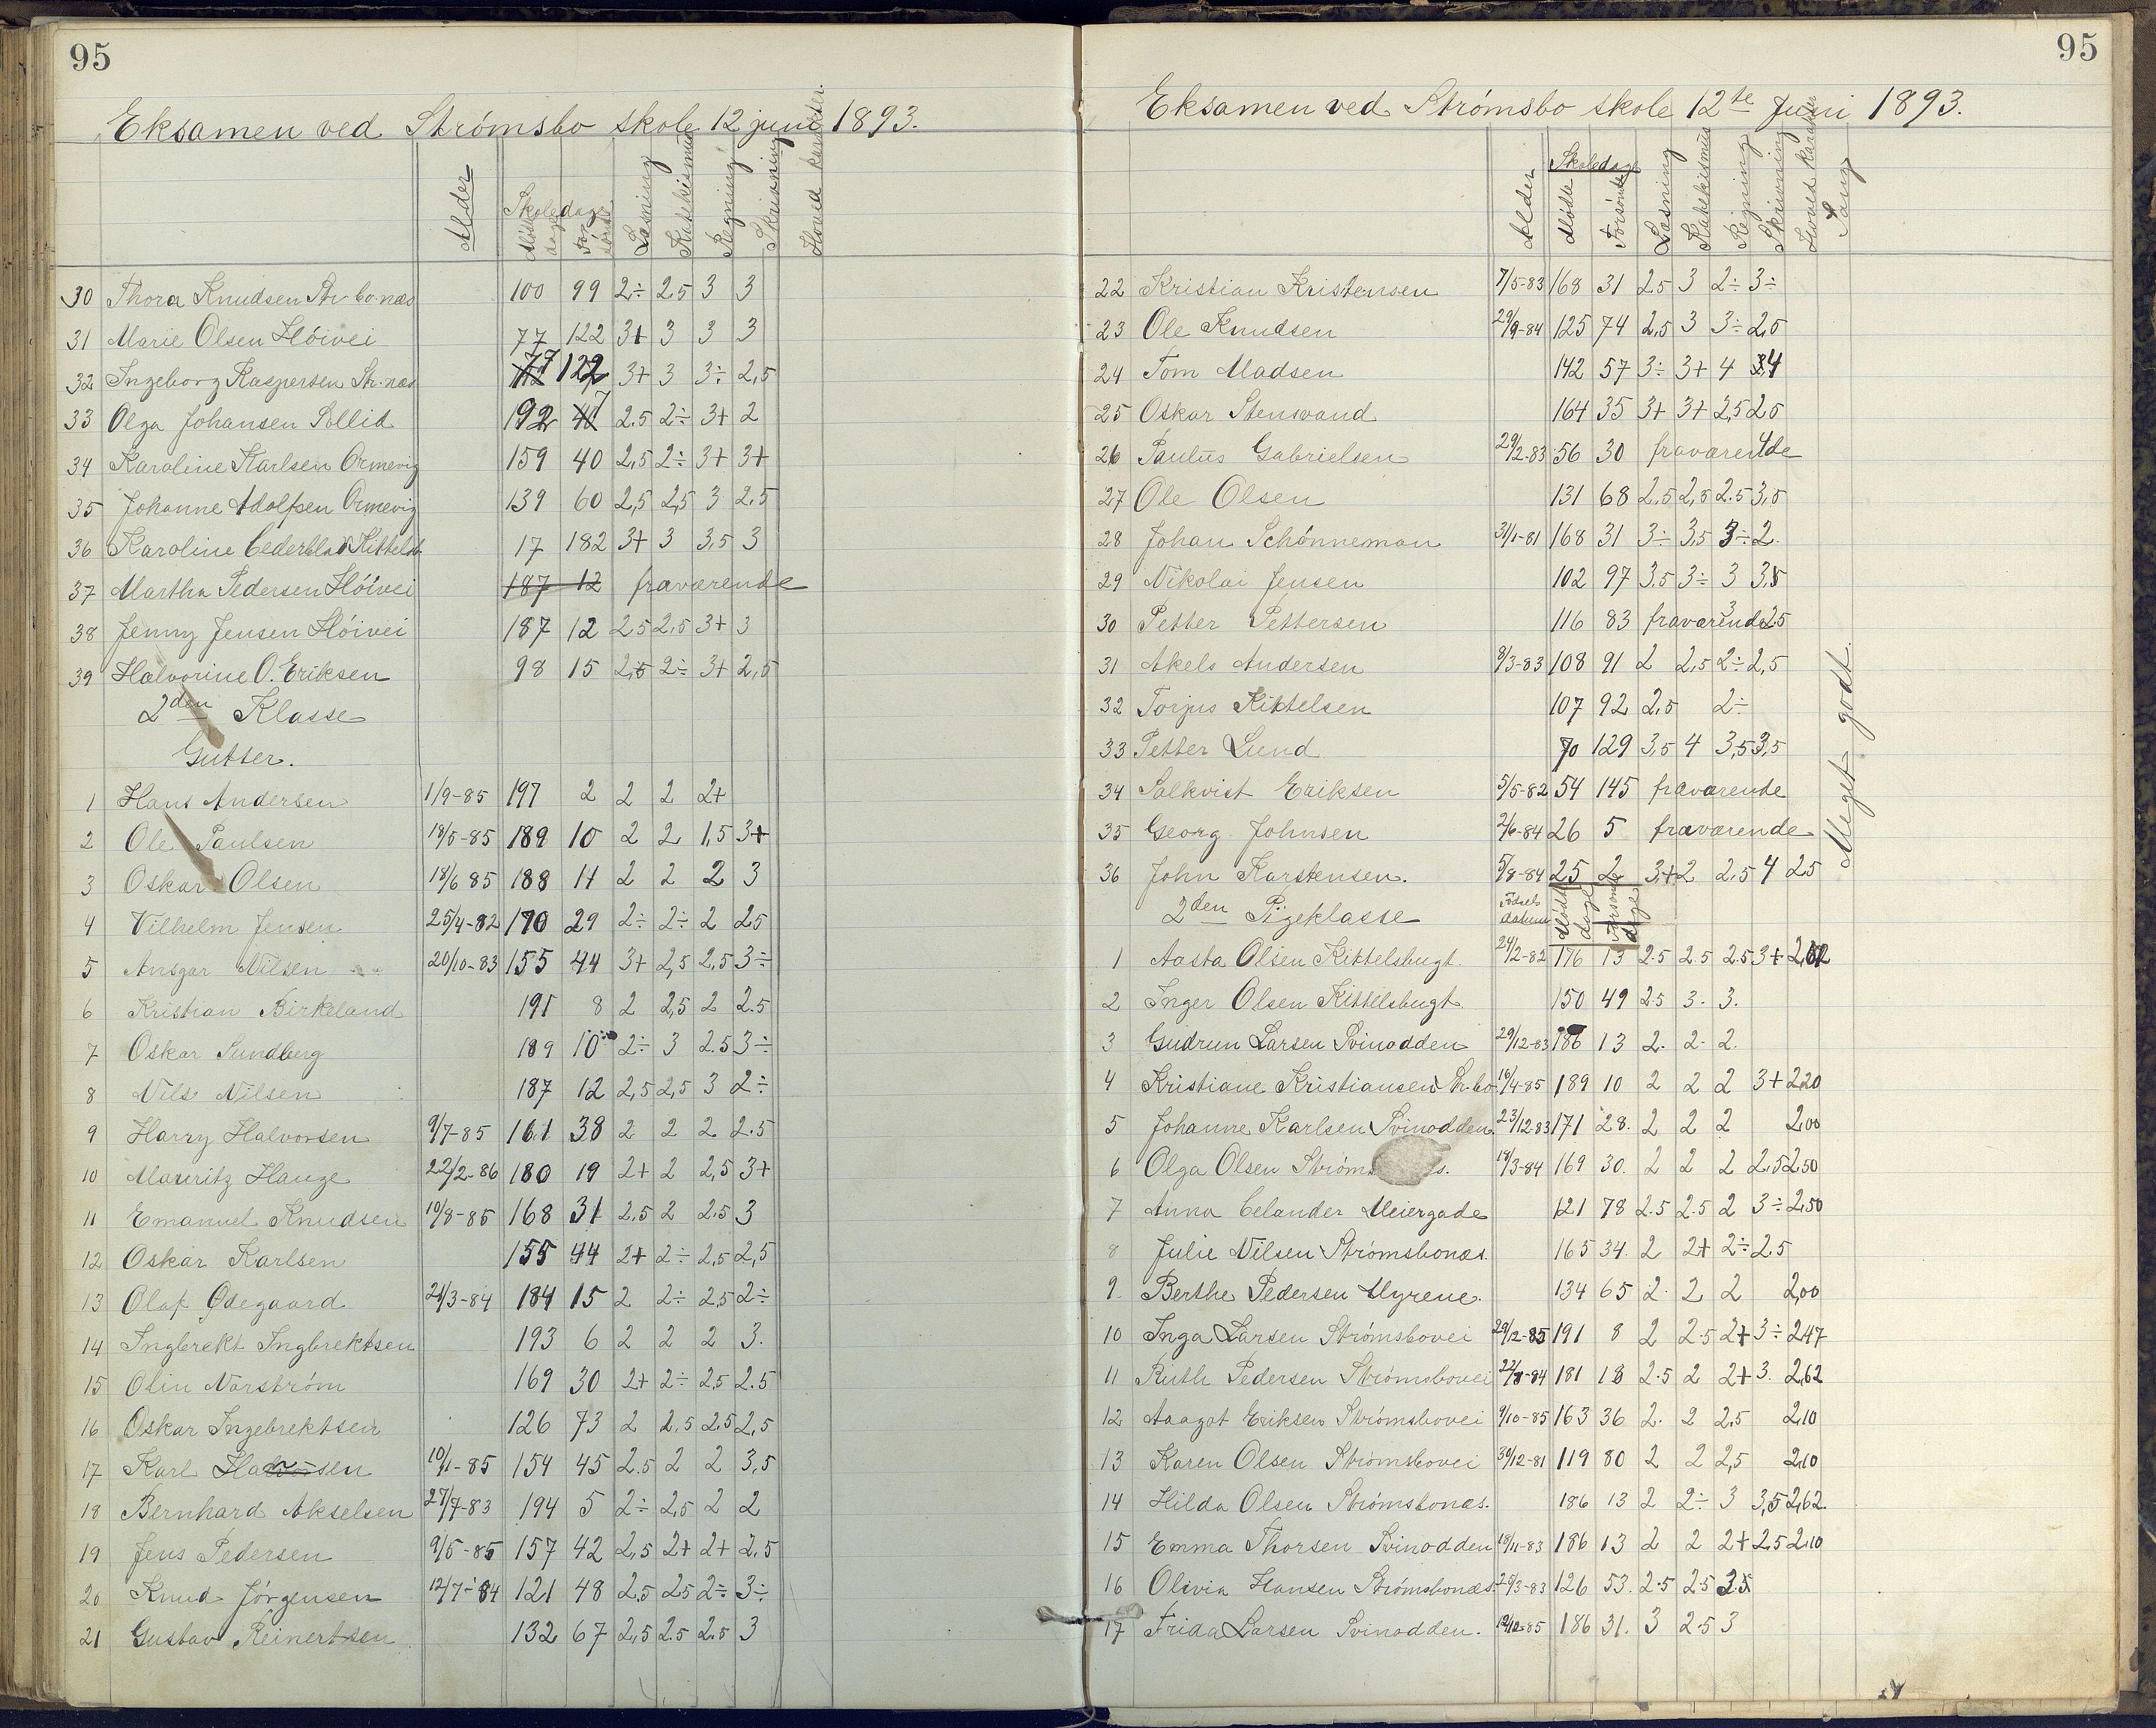 95
Eksamen ved Strómsbo skole 12 juni 1893.
Alder Skoledage Mødte dage Forsømte Læsning Katekismus Regning Skrivning Hoved karakter
30 Thora Knudsen Str. bo.næs 100 99 2÷ 2.5 3 3
31 Marie Olsen Hóivei 77 122 3+ 3 3 3
32 Ingeborg Kaspersen Str.næs 77 122 3+ 3 3÷ 2,5
33 Olga Johansen Sollid 192 7 2.5 2÷ 3+ 2
34 Karoline Karlsen Ormevig 159 40 2,5 2÷ 3+ 3+
35 Johanne Adolfsen Ormevig 139 60 2,5 2,5 3 2.5
36 Karoline Cederblad Kittelsb. 17 182 3+ 3 3,5 3
37 Martha Pedersen Hóivei 187 12 fraværende
38 Jenny Jensen Hóivei 187 12 2.5 2.5 3+ 3
39 Halvorine O. Eriksen 98 15 2,5 2÷ 3+ 2,5
2den Klasse
Gutter.
1 Hans Andersen 1/9-85 197 2 2 2 2+
2 Ole Paulsen 18/5-85 189 10 2 2 1,5 3+
3 Oskar Olsen 18/6 85 188 11 2 2 2 3
4 Vilhelm Jensen 25/4-82 170 29 2÷ 2÷ 2 2.5
5 Ansgar Nilsen 20/10-83 155 44 3+ 2,5 2,5 3÷
6 Kristian Birkeland 191 8 2 2,5 2 2.5
7 Oskar Sundberg 189 10 2÷ 3 2.5 3÷
8 Nils Nilsen 187 12 2,5 2,5 3 2÷
9 Harry Halvorsen 9/7-85 161 38 2 2 2 2.5
10 Mauritz Hauge 22/2-86 180 19 2+ 2 2,5 3+
11 Emanuel Knudsen 10/8-85 168 31 2.5 2 2.5 3
12 Oskar Karlsen 155 44 2+ 2÷ 2,5 2,5
13 Olaf Ødegaard 21/3-84 184 15 2 2÷ 2,5 2÷
14 Ingbrekt Ingbrektsen 193 6 2 2 2 3.
15 Olin Norström 169 30 2+ 2÷ 2,5 2.5
16 Oskar Ingebrektsen 126 73 2 2.5 2.5 2,5
17 Karl 10/1-85 154 45 2.5 2 2 3,5
18 Bernhard Akselsen 27/7-83 194 5 2÷ 2,5 2 2
19 Jens Pedersen 9/5-85 157 42 2,5 2+ 2+ 2,5
20 Knud Jórgensen 12/7-84 121 48 2,5 2.5 2÷ 3÷
21 Gustav Reinertsen 132 67 2,5 2.5 2.5 3
95
Eksamen ved Strómsbo skole 12te Juni 1893.
Alder Skoledage Mødte Forsómte Læsning Katekismus Regning Skrivning Hoved karakter Sang
22 Kristian Kristensen 7/5-83 168 31 2.5 3 2÷ 3÷
23 Ole Knudsen 29/9-84 125 74 2,5 3 3÷ 2,5
24 Tom Madsen 142 57 3÷ 3+ 4 4
25 Oskar Stensvand 164 35 3+ 3+ 2,5 2.5
26 Paulus Gabrielsen 29/2-83 56 30 fraværende
27 Ole Olsen 131 68 2.5 2,5 2.5 3,5
28 Johan Schónneman 31/1-81 168 31 3÷ 3,5 3÷ 2.
29 Nikolai Jensen 102 97 3.5 3÷ 3 3,5
30 Petter Pettersen 116 83 fraværende 3 2.5
31 Akels Andersen 8/3-83 108 91 2 2,5 2÷ 2,5
32 Torjus Kittelsen 107 92 2,5 2÷
33 Petter Lund 70 129 3,5 4 3,5 3,5
34 Salkvist Eriksen 5/5-82 54 145 fraværende
35 Georg Johnsen 2/6-84 26 5 fraværende
36 John Karstensen. 5/8-84 25 2 3+ 2 2.5 4 2.5
Meget godt.
2den Pigeklasse Fødsels datum Mødte dage Forsømte dage
1 Aasta Olsen Kittelsbugt. 24/2-82 176 13 2.5 2.5 2.5 3+ 2,62
2 Inger Olsen Kittelsbugt. 150 49 2.5 3. 3.
3 Gudrun Larsen Svinodden 29/12-83 186 13 2. 2. 2.
4 Kristiane Kristiansen Str.bo 16/4-85 189 10 2 2 2 3+ 2,20
5 Johanne Karlsen Svinodden. 23/12-83 171 28. 2 2 2 2,00
6 Olga Olsen 18/3-84 169 30. 2 2 2 2.5 2,50
7 Anna Celander Meiergade 121 78 2.5 2.5 2 3÷ 2,50
8 Julie Nilsen Strómsbonæs. 165 34. 2 2+ 2÷ 2.5
9. Berthe Pedersen Myrene. 134 65 2. 2 2 2,00
10 Inga Larsen Strómsbovei 29/12-85 191 8 2 2.5 2+ 3÷ 2,47
11 Ruth Pedersen Strómsbovei 22/8-84 181 18 2.5 2 2+ 3. 2,62
12 Aagot Eriksen Strómsbovei 9/10-85 163 36 2. 2 2.5 2,10
13 Karen Olsen Strómsbovei 30/12-81 119 80 2 2 2,5 2,10
14 Hilda Olsen Strómsbonæs. 186 13 2 2÷ 3 3,5 2,62
15 Emma Thorsen Svinodden 18/11-83 186 13 2 2 2+ 2.5 2,10
16 Olivia Hansen Strómsbonæs. 25/3-83 126 53. 2.5 2.5 3.5
17 Frida Larsen Svinodden. 12/12-85 186 31. 3 2.5 3